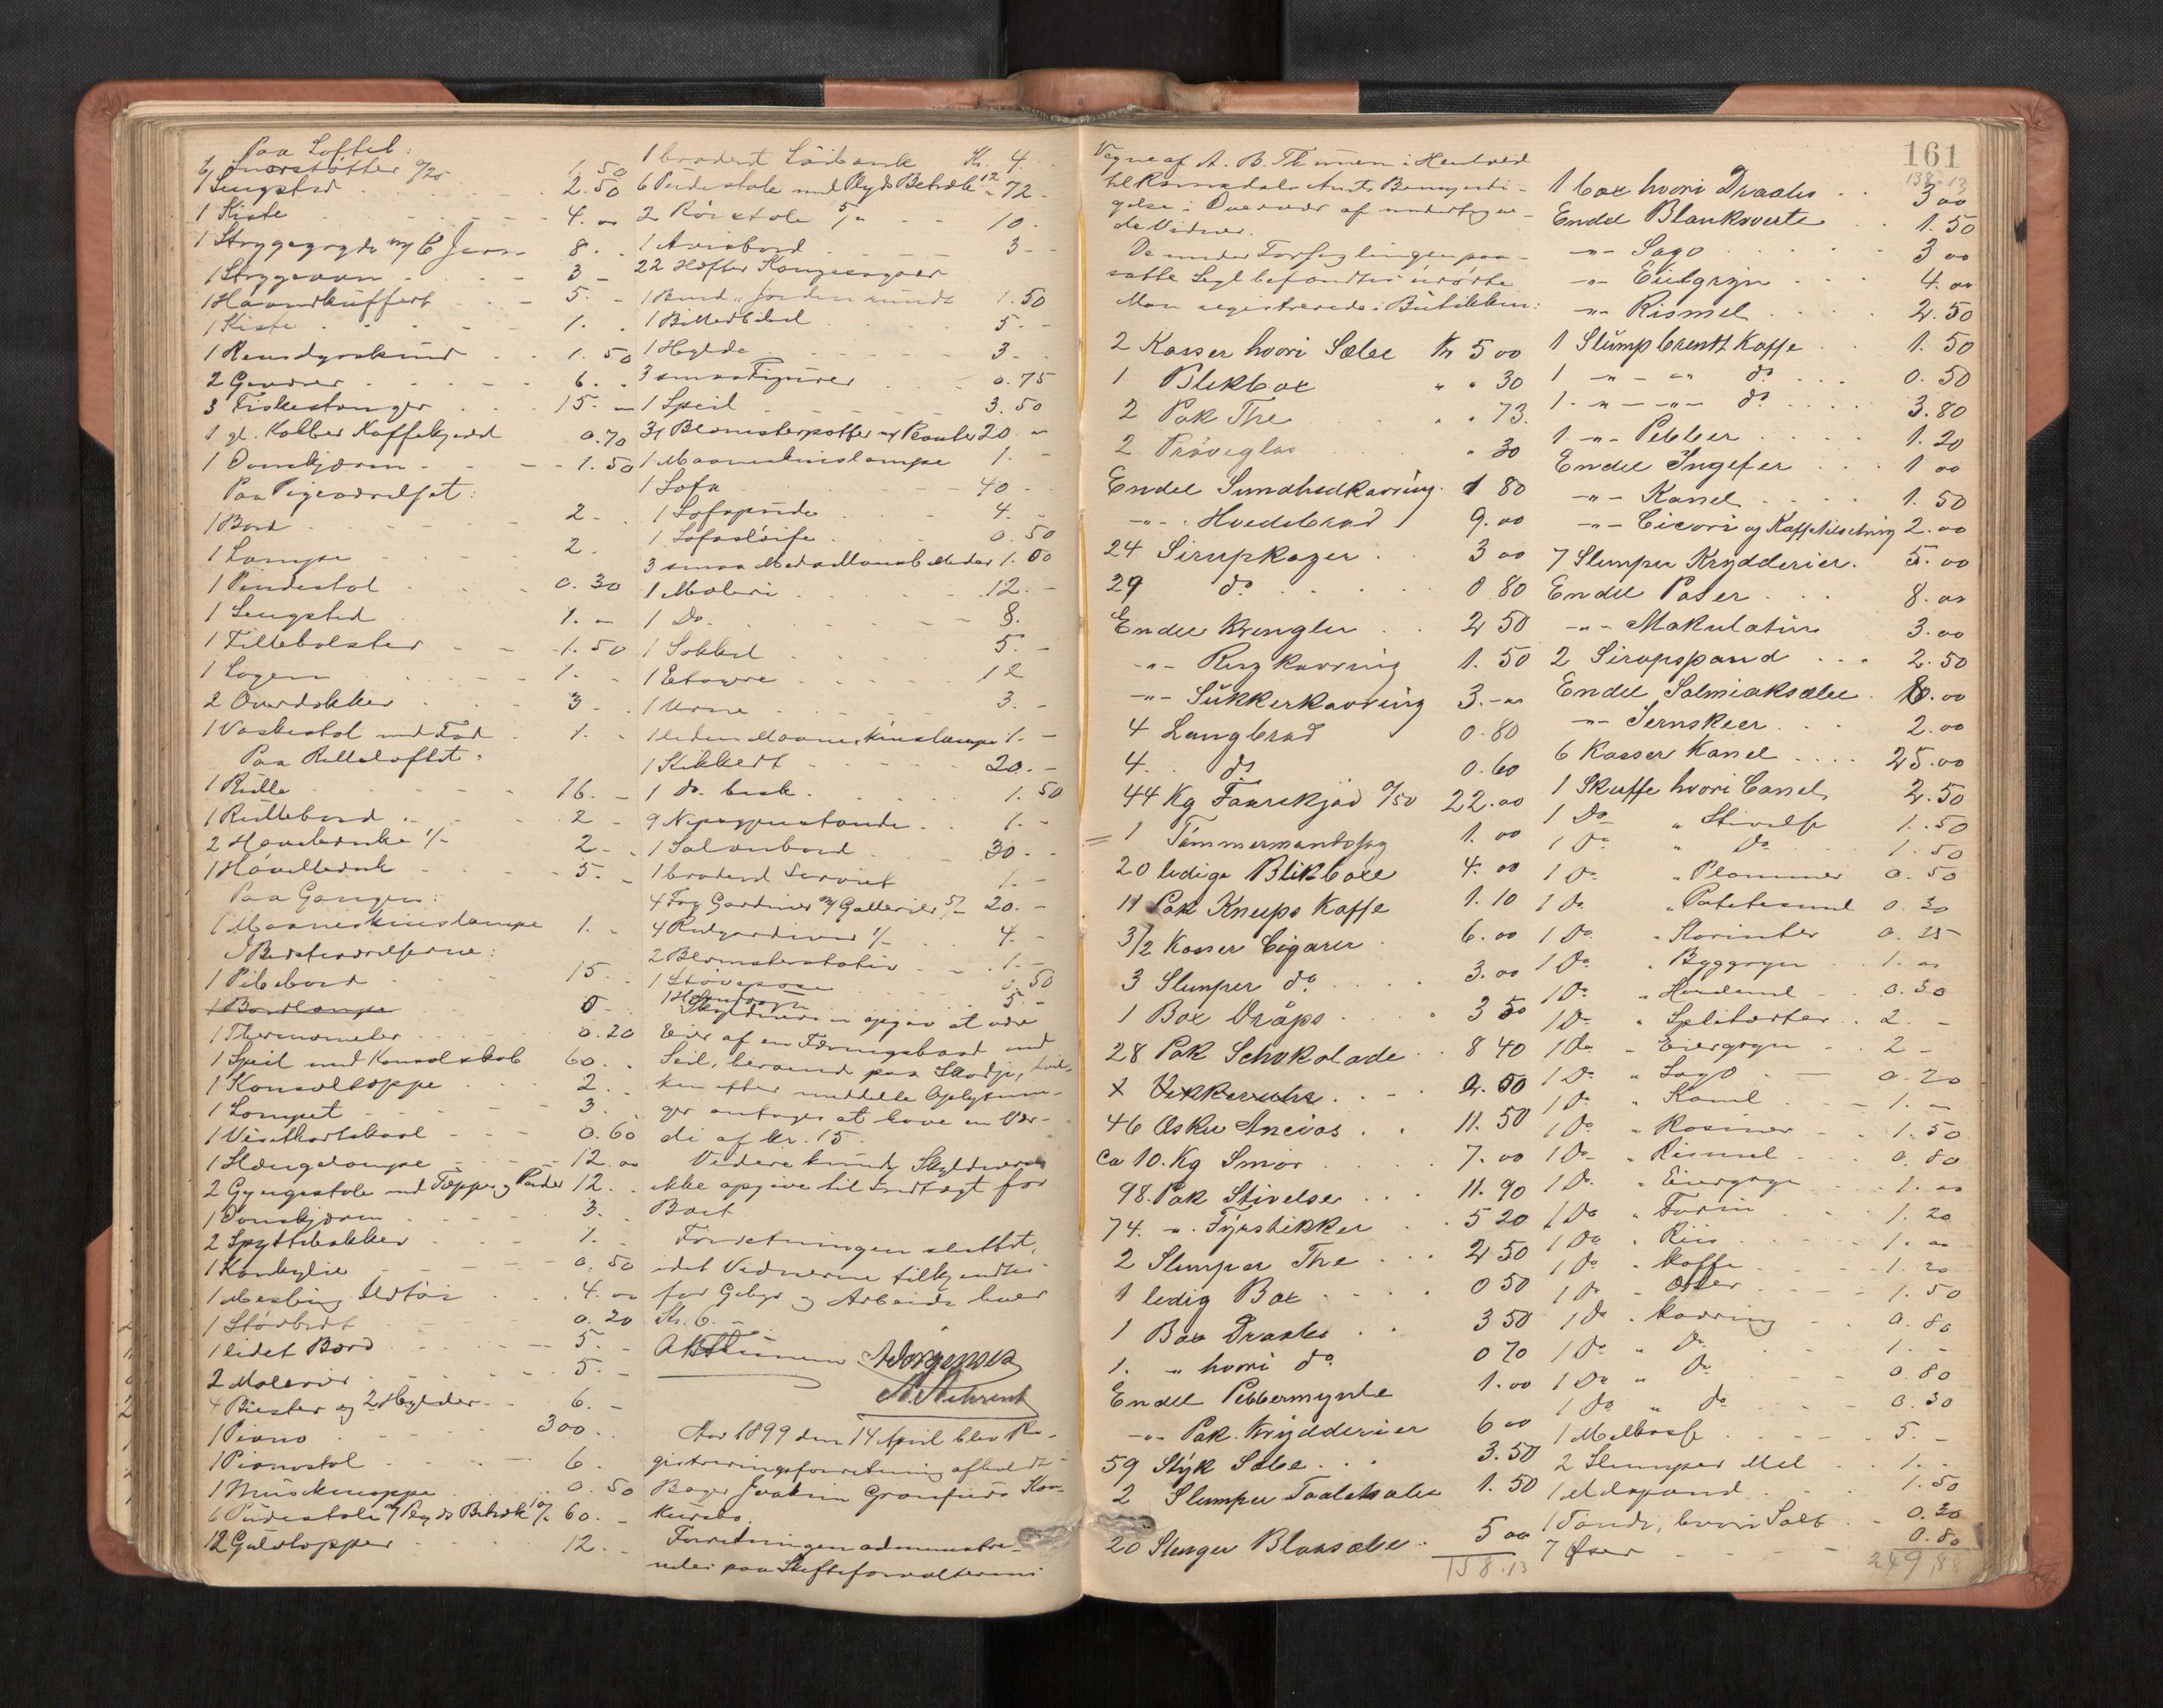 Paa Loftet:
6 Snorstøtter 0/25 1.50
1 Sengsted 2.50
1 Kiste 4. 00
1 Strygegryde m/ 6 Jern 8.
1 Strygeovn 3 -
1 Haandkuffert 5. -
1 Kiste 1. -
1 Rensdyrskind 1. 50
2 Geværer 6. -
3 Fiskestanger 15. -
1 gl. Kobber Kaffekjedel 0.70
1 Ovnskjærm 1.50
Paa Pigeværelset:
1 Bord 2 -
1 Lampe 2.
1 Pindestol 0. 30
1 Sengsted 1. -
1 Fillebolster 1. 50
1 Lagen 1. -
2 Overdækker 3 -
1 Vaskestol med Fad 1. -
Paa Rulleloftet:
1 Rulle 16. -
1 Rullebord 2 -
2 Høvlebænke 1/- 2 -
1 Høvelbænk 5. -
Paa Gangen:
1 Maaneskinslampe 1. -
I Bestværelserne:
1 Pibebord 15. -
1 Bordlampe
1 Thermometer 0.20
1 Speil med Konsolskab 60. -
1 Konsoltæppe 2. -
1 Lampet 3. -
1 Visitkortskaal 0.60
1 Hængelampe 12. 00
2 Gyngestole med Tæpper og Puder 12. -
1 Ovnskjærm 3. -
2 Spyttebakker 1. -
1 Konkylie 0. 50
1 Messing 4. 00
1 Støvbrett 0. 20
1 lidet Bord 5. -
2 Malerier 5. -
4 Büster og 2 Hylder 6. -
1 Piano 300. -
1 Pianostol 6. -
1 Musikmappe 0. 50
6 Pudestole m/ Plyds Betræk 10/- 60. -
12 Gulvtæpper 12. -
1 broderet Løibænk Kr. 4 -
6 Pudestole med Plyds Betræk 12/- 72 -
2 Rørstole 5/- 10 -
1 Avisbord 3 -
22 Hefter Kongesagaer
1 Bind "Jorden rundt" 1.50
1 Billedbibel 5. -
1 Hylde 3 -
3 smaa Figurer 0.75
1 Speil 3.50
31 Blomsterpotter m/ Planter 20. -
1 Maaneskinslampe 1. -
1 Sofa 40 -
1 Sofapude 4. -
1 Sofasløife 0. 50
3 smaa Medaillonbilleder 1.00
1 Maleri 12. -
1 Do. 8.
1 Sokkel 5. -
1 Etagere 12
1 Urne 3. -
1 liden Maaneskinslampe 1. -
1 Kikkert 20. -
1 do. besk. 1. 50
9 Nipsgjenstande 1. -
1 Salonbord 30. -
1 broderet Serviet 1. -
4 Fag Gardiner m/ Gallerier 5/- 20. -
4 Rulgardiner 1/- 4. -
2 Blomsterstativ 1. -
1 Støvepose 0. 50
1 Haandvogn 5. -
Skyldneren opgav at være
Eier af en Færingsbaad med
Seil, beroende paa Skodje, hvil-
ken efter meddelte Oplysnin-
ger antages at have en Vær-
di af kr. 15.
Videre kunde Skyldneren
ikke opgive til Indtægt for
Boet
Forretningen sluttet,
idet Vidnerne tilkjendtes
for Gebyr og Arbeide hver
Kr. 6. -
ABThinnem AJørgensen
A. Behrent
Aar 1899 den 14 April blev Re-
gistreringsforretning afholdt i
Bager Joakim Granfurs Kon-
kursbo.
Forretningen administre-
redes paa Skifteforvalterens
161
Vegne af A. B. Thinnem i Henhold
til Romsdals Amts Bemyndi-
gelse i Overvær af undertegne-
de Vidner.
De under Forseglingen paa-
satte Segl befandtes urørte
Man registrerede i Butikken:
2 Kasser hvori Sæbe Kr 5 00
1 Blikbox " " 30
2 Pak The " " 73.
2 Prøveglas " 30
Endel Sundhedkavring 1 80
-"- Hvedebrød 9. 00
24 Sirupkager 3 00
29 do 0 80
Endel Kringler 2 50
-"- Rugkavring 1. 50
-"- Sukkerkavring 3. -
4 Langbrød 0.80
4. do 0.60
44 Kg Faarekjød 0/50 22.00
1 Tømmermandssag 1. 00
20 ledige Blikboxe 4. 00
11 Pak Kneips Kaffe 1.10
3/2 Kasser Cigarer 6. 00
3 Slumper do. 3. 00
1 Box Dråps 3 50
28 Pak Schokolade 8 40
1 Vækkeruhr 2. 00
46 Æsker Ancivos 11. 50
ca 10. Kg Smør 7. 00
98. Pak Stivelse 11. 90
74. " Fyrstikker 5 20
2 Slumper The 2 50
1 ledig Box 0 50
1 Box Draabs 3 50
1. " hvori do. 0 70
Endel Pebbermynte 1.00
-"- Pak. Krydderier 6 00
59 Styk Sæbe 3.50
2 Slumper Toiletsæbe 1. 50
20 Stenger Blaasæbe 5 00
158.13
138.13
1 box hvori Draabs 3 00
Endel Blanksverte 1. 50
-"- Sago 3 00
-"- Eidgryn 4. 00
-"- Rismel 2. 50
1 Slump brentt Kaffe 1. 50
1 -"- -"- do 0. 50
1. -"- -"- do 3.80
1 -"- Pebber 1. 20
Endel Ingefer 1 00
-"- Kanel 1. 50
-"- Cicori og Kaffetilsetning 2. 00
7 Slumper Krydderier. 5. 00
Endel Poser 8. 00
-"- Makulatur 3. 00
2 Sirupspand 2. 50
Endel Salmiaksæbe 10. 00
-"- Jernskeer 2. 00
6 Kasser Kanel 25.00
1 Skuffe hvori Canel 2. 50
1 Do " Stivelse 1. 50
1 Do " Do 1. 50
1 Do " Plommer 0. 50
1 Do " Potetesmel 0. 30
1 Do " Korinter 0. 25
1 Do " Byggryn 1. 00
1 Do " Hvedemel 0. 30
1 Do " Spliterter 2. -
1 Do " Eiergryn 2 -
1 Do " Sago 0. 20
1 Do " Kanel 1. -
1 Do " Rosiner 1. 50
1 Do " Rismel 0. 80
1 Do " Eiergryn 1. 00
1 Do " Farin 1. 20
1 Do " Riis 1. 00
1 Do " Kaffe 1. 20
1 Do " 1. 50
1 Do " Kavring 0. 80
1 Do " Do 1. -
1 Do " Do 0. 80
1 Do " do 0. 30
1 Melkasse 5. -
2 Slumper Mel 1. -
1 Melspand 1. 50
1 Tønde, hvori Salt 0. 30
7 Øser 0. 80
249,88